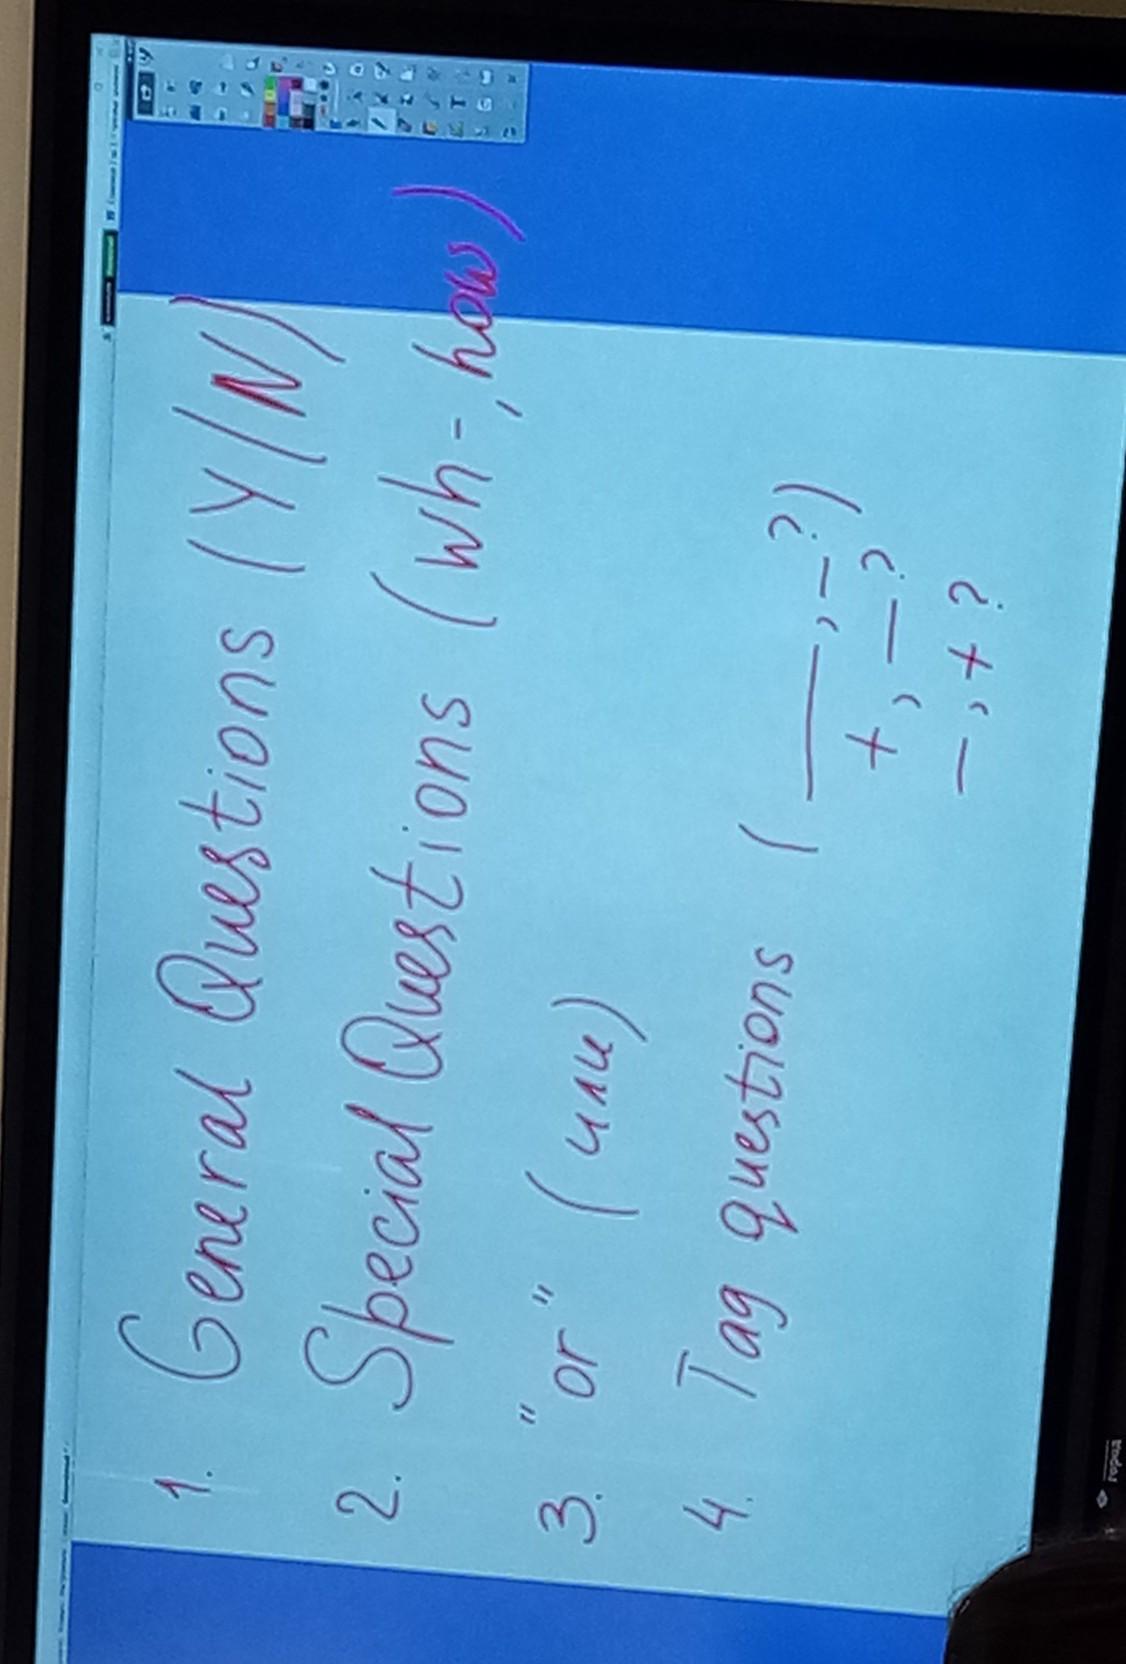 1. General Questions (Y/N)
2. Special Questions (wh-, how)
3. "or" (или)
4. Tag questions (___, –?)
+, –?
–, +?